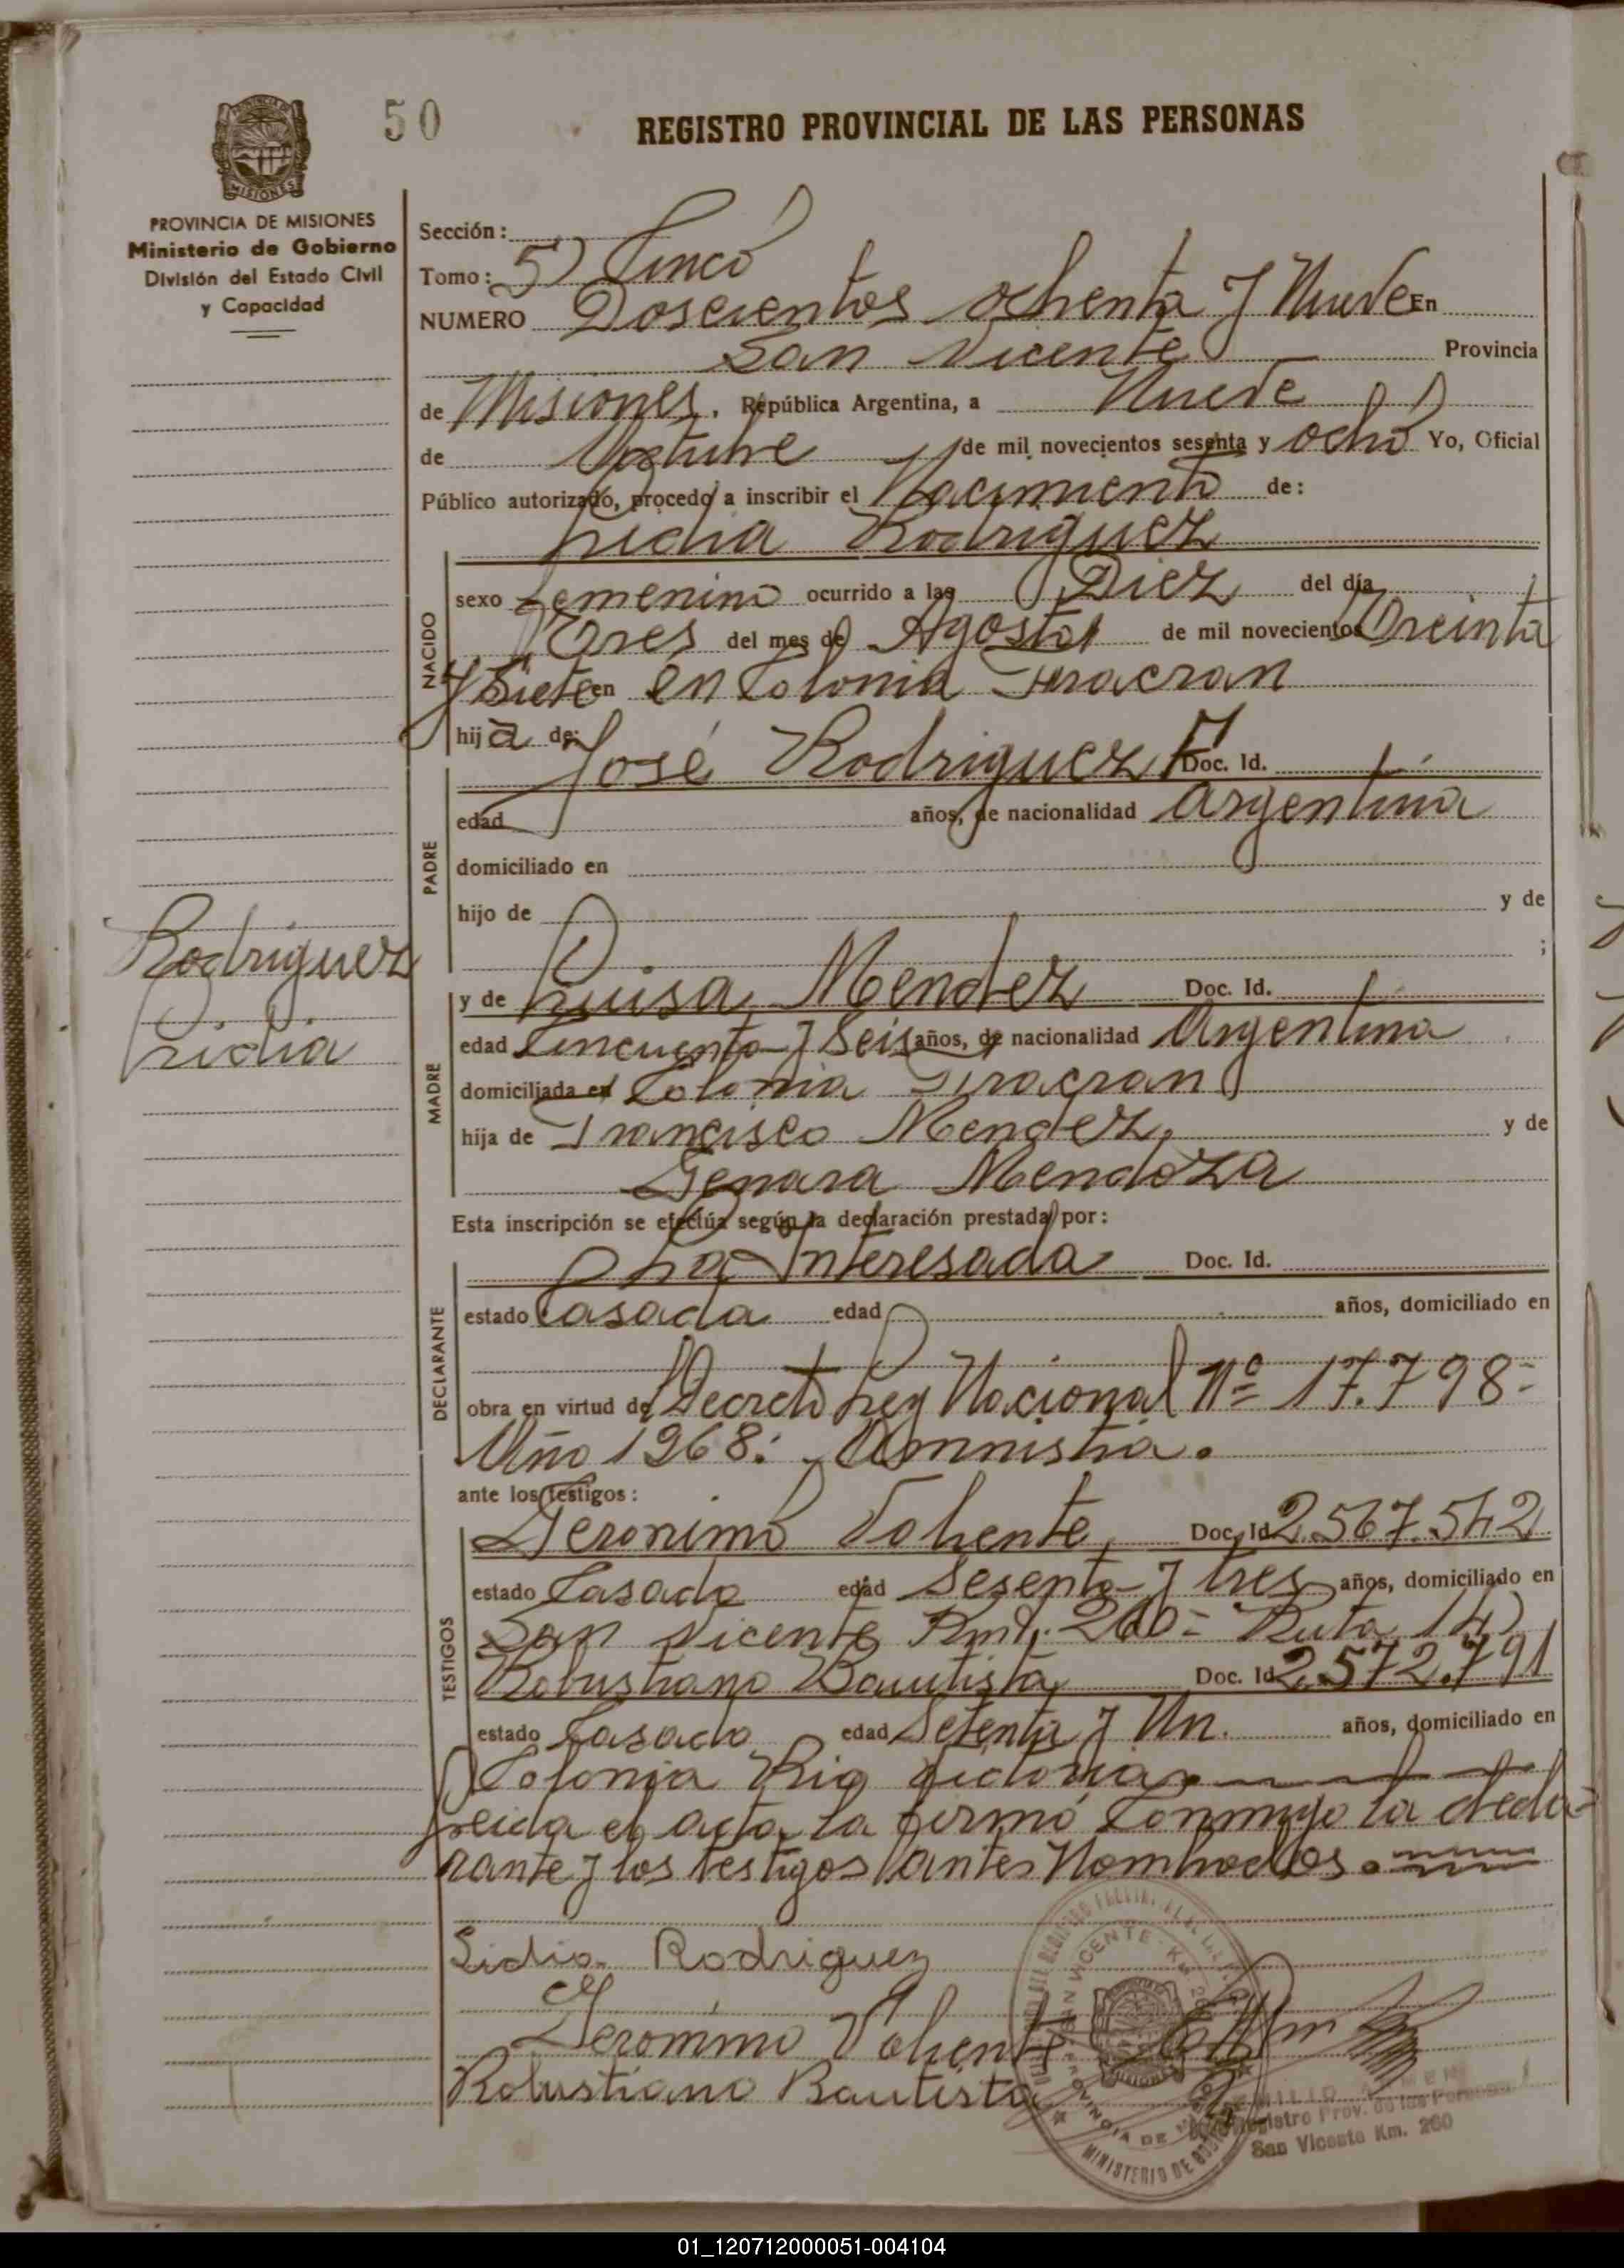 50
REGISTRO PROVINCIAL DE LAS PERSONAS
PROVINCIA DE MISIONES
MISIONES
PROVINCIA DE MISIONES
Ministerio de Gobierno
División del Estado Civil
y Capacidad
Sección:
Tomo: 5) Cinco
NUMERO Doscientos ochenta y Nueve En
San Vicente Provincia
de Misiones. República Argentina, a Nueve
de Octubre de mil novecientos sesenta y ocho Yo, Oficial
Público autorizado, procedo a inscribir el Nacimiento de:
Lidia Rodriguez
NACIDO
sexo femenino ocurrido a las Diez del día
Tres del mes de Agosto de mil novecientos Treinta
y Siete en en Colonia Fracran
hija de:
PADRE
José Rodriguez F Doc. Id.
edad años, de nacionalidad Argentina
domiciliado en
hijo de y de
;
Rodriguez
Lidia
MADRE
y de Luisa Mendez Doc. Id.
edad Cincuenta y Seis años, de nacionalidad Argentina
domiciliada en Colonia Fracran
hija de Francisco Mendez, y de
Genara Mendoza
Esta inscripción se efectúa según la declaración prestada por:
DECLARANTE
La Interesada Doc. Id.
estado Casada edad años, domiciliado en
obra en virtud de Decreto Ley Nacional Nº 17.798-
Año 1968: Amnistia.
ante los testigos:
TESTIGOS
Geronimo Valiente, Doc. Id 2.567.542
estado Casado edad Sesenta y tres años, domiciliado en
San Vicente Kmt. 260- Ruta 14)
Robustiano Bautista Doc. Id 2.572.791
estado Casado edad Setenta y Un. años, domiciliado en
Colonia Rio Victoria.
Leida el acta la firmó Conmigo la decla-
rante y los testigos antes Nombrados.
Lidia Rodriguez
Geronimo Valiente
Robustiano Bautista
SAN VICENTE KM. 260
PROVINCIA DE MISIONES
MINISTERIO DE GOBIERNO
Registro Prov. de las Personas
San Vicente Km. 260
01_120712000051-004104